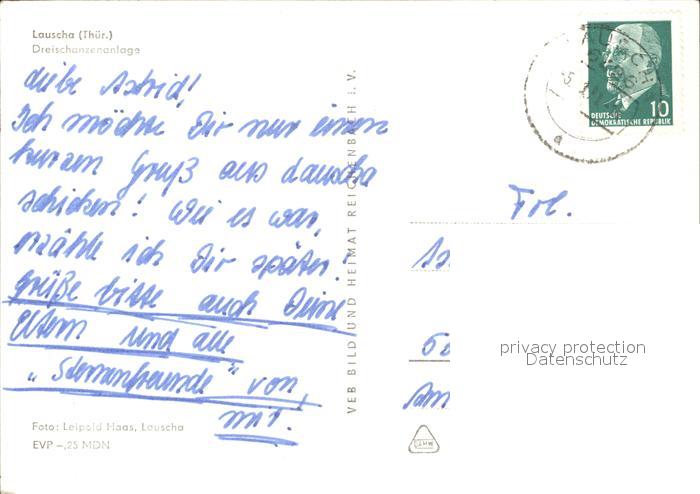 Lauscha (Thür.)
Dreischanzenanlage
Liebe Astrid!
Ich möchte Dir nur einen
kurzen Gruß aus Lauscha
schicken! Wie es war,
erzähle ich Dir später!
grüße bitte auch Deine
Eltern und alle
„Sternenfreunde" von
mir.
Foto: Leipold Haas, Lauscha
EVP –,25 MDN
VEB BILD UND HEIMAT REICHENBACH I. V.
10
DEUTSCHE
DEMOKRATISCHE REPUBLIK
Frl.
As
Am
privacy protection
Datenschutz